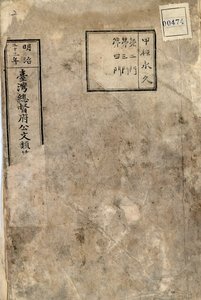 00474
甲種永久
第二門
第三門
第四門
明治
三十三年
臺灣總督府公文類